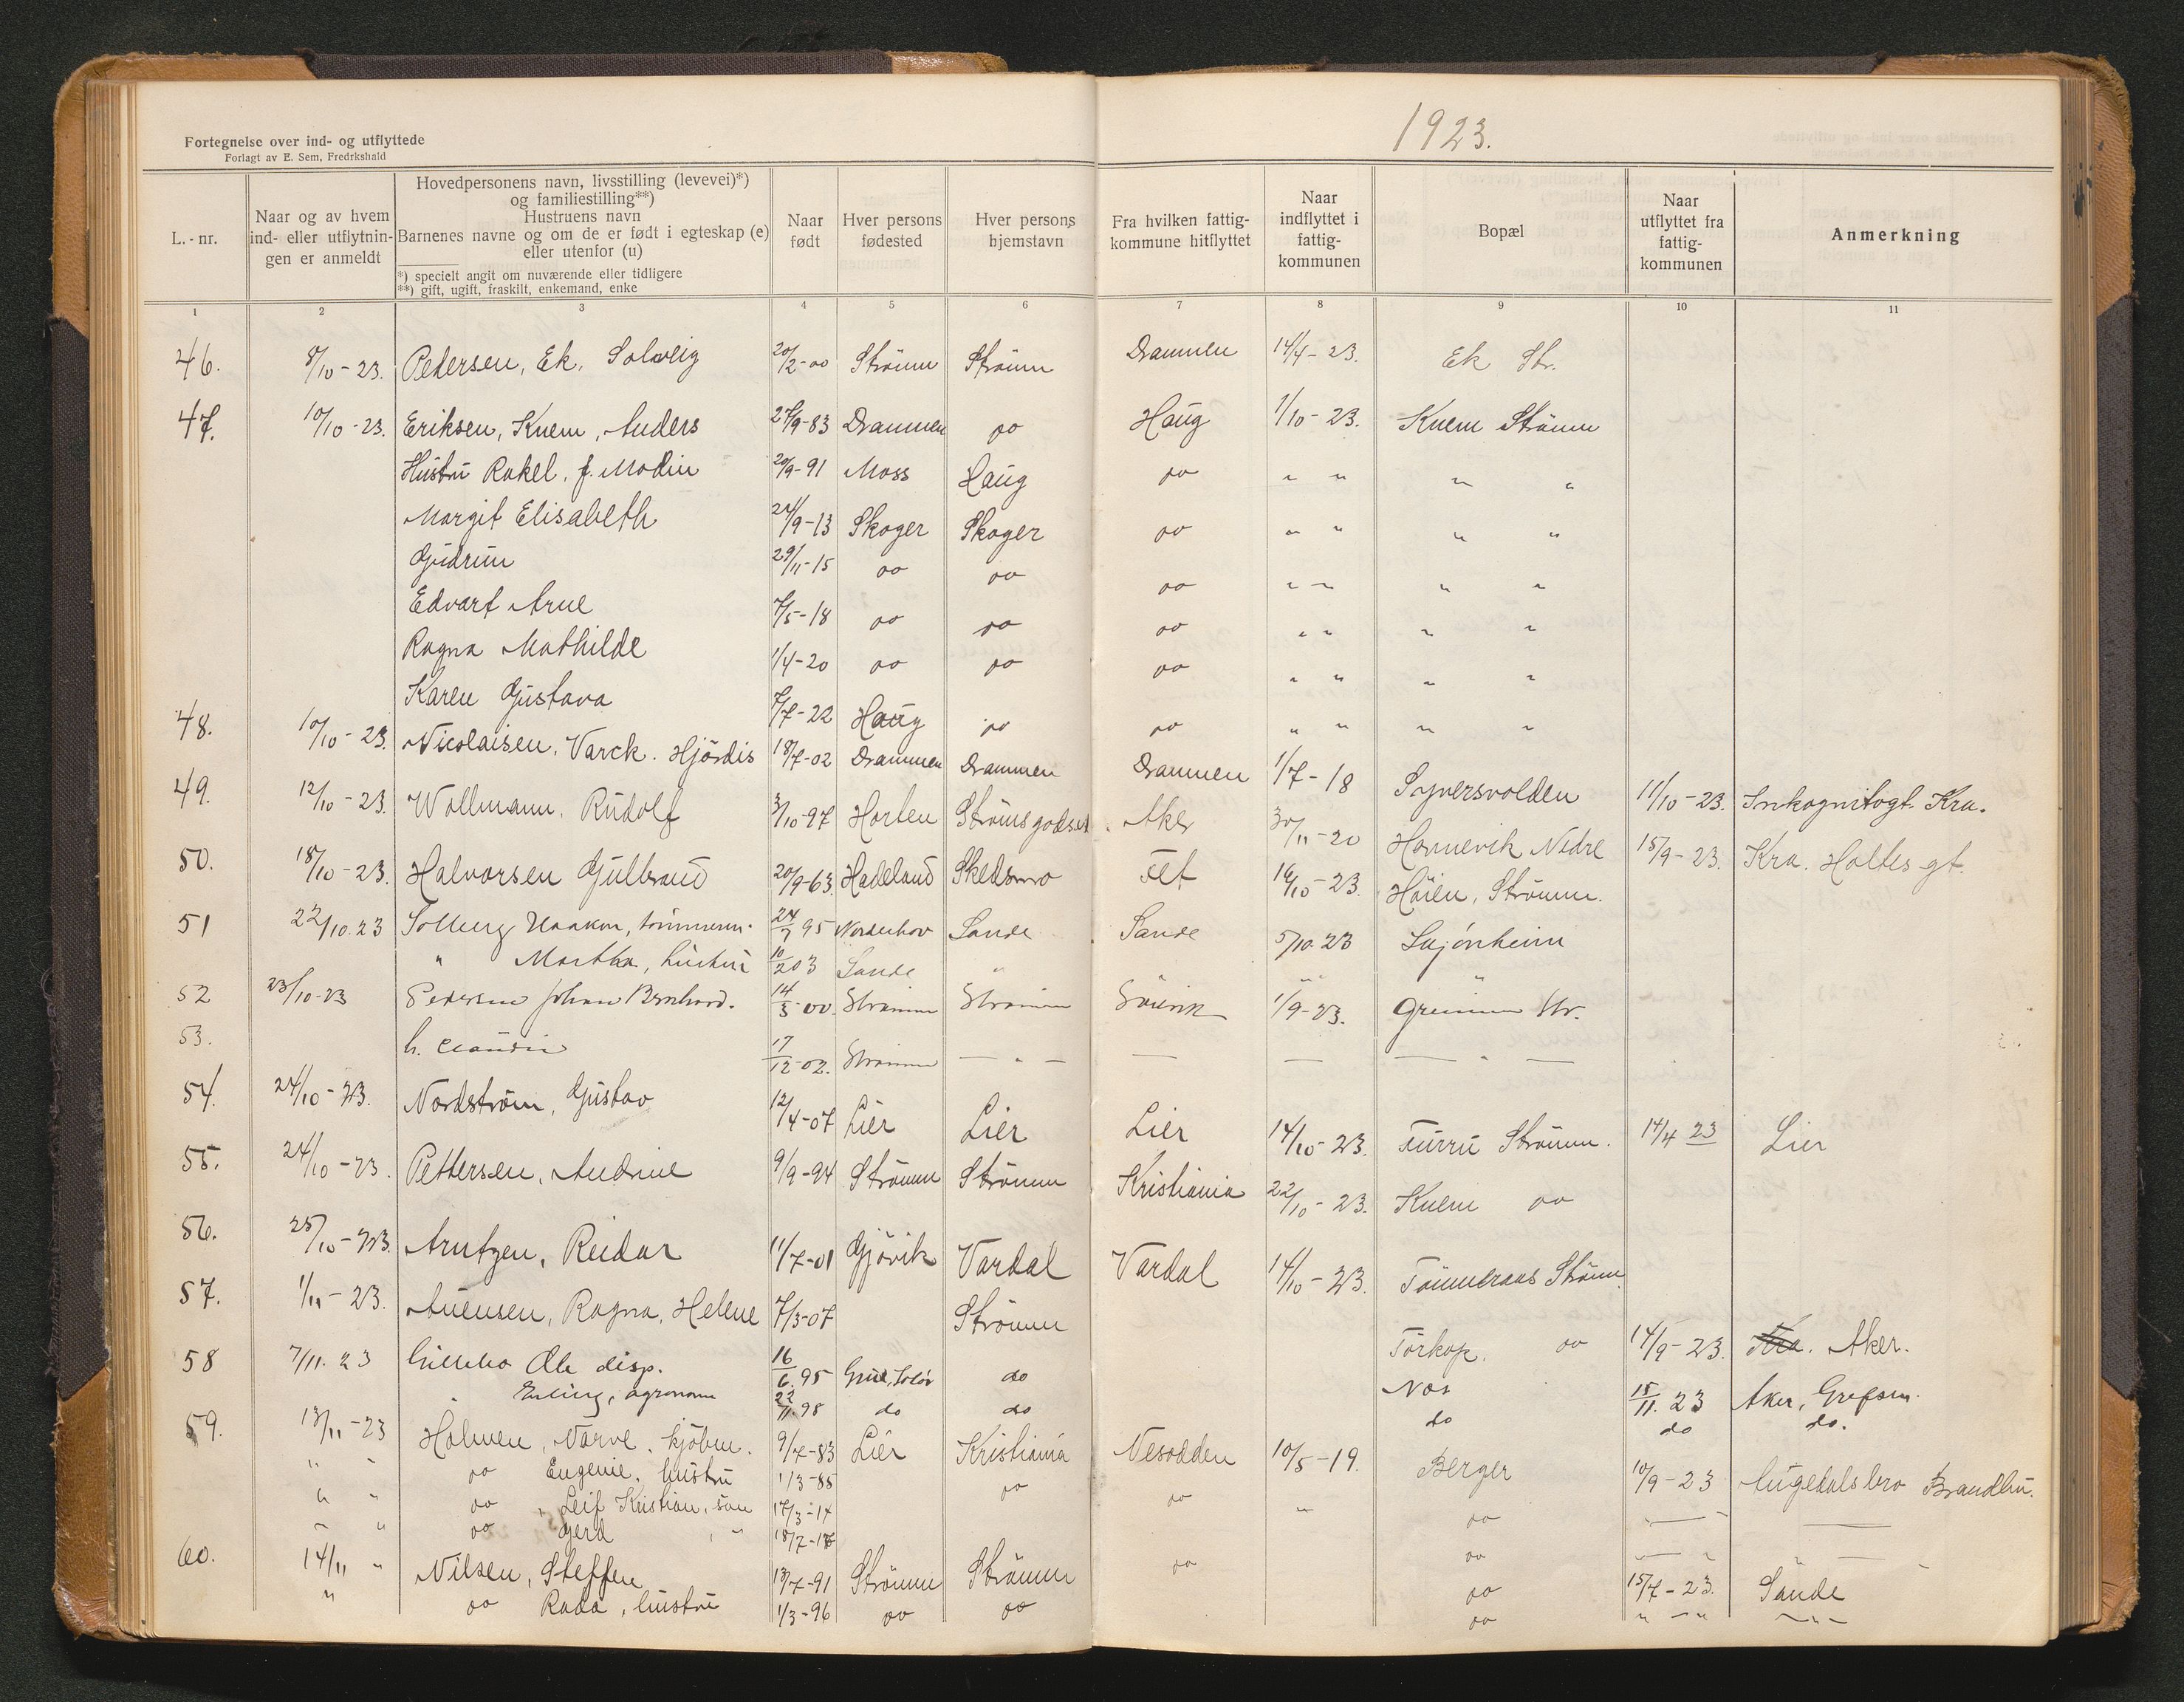 1923.
Fortegnelse over ind- og utflyttede
Forlagt av E. Sem, Fredrkshald
L.-nr.
Naar og av hvem ind- eller utflytningen er anmeldt
Hovedpersonens navn, livsstilling (levevei)*) og familiestilling**)
Hustruens navn
Barnenes navne og om de er født i egteskap (e) eller utenfor (u)
*) specielt angit om nuværende eller tidligere
**) gift, ugift, fraskilt, enkemand, enke
Naar født
Hver persons fødested
Hver persons hjemstavn
Fra hvilken fattigkommune hitflyttet
Naar indflyttet i fattigkommunen
Bopæl
Naar utflyttet fra fattigkommunen
Anmerkning
1 2 3 4 5 6 7 8 9 10 11
46. 8/10-23. Pedersen, Ek, Solveig 20/2-00 Strömm Strömm Drammen 14/4-23. Ek Str.
47. 10/10-23. Eriksen, Knem, Anders 27/9-83 Drammen do Haug 1/10-23. Knem Strömm
Hustru Rakel, f. Modin 20/9-91 Moss Haug do " " " "
Margit Elisabeth 24/9-13 Skoger Skoger do " " " "
Gudrun 29/11-15 do do do " " " "
Edvart Arne 7/5-18 do do do " " " "
Ragna Mathilde 1/4-20 do do do " " " "
Karen Gustava 7/7-22 Haug do do " " " "
48. 10/10-23. Nicolaisen, Varck. Hjördis 18/7-02 Drammen Drammen Drammen 1/7-18 Syversvolden 11/10-23. Inkognitogt. Kra.
49. 12/10-23. Wollmann, Rudolf 3/10-97 Horten Strömsgodset Aker 30/11-20 Hannevik Nedre 15/9-23. Kra. Holtes gt.
50. 18/10-23. Halvorsen Gulbrand 20/9-63 Hadeland Skedsmo Fet 16/10-23. Höien, Strömm.
51 22/10.23 Solberg Haakon, tömmerm. 24/7 95 Norderhov Sande Sande 5/10.23 Sujónheim
" Martha, hustru 10/2 03 Sande " " " "
52 23/10-23 Pedersen Johan Bernhard. 14/3-00. Strömm Strömm Svelvik 1/9-23. Grimm Str.
53. h. Claudia 17/12-02. Strömm — " — — — — " —
54. 24/10-23. Nordström, Gustav 12/4-07 Lier Lier Lier 14/10-23. Furru Strömm. 14/4 23 Lier
55. 24/10-23. Pettersen, Andrine 9/9-94 Strömm Strömm Kristiania 22/10-23. Knem do
56. 25/10-23. Arntzen, Reidar 11/7-01 Gjövik Vardal Vardal 14/10-23. Tömmeraas Strömm
57. 1/11-23. Auensen, Ragna, Helene 7/3-07 Strömm Törkop. do 14/9-23. Kra. Aker.
58 7/11.23 Gillebo Ole disp. 16/6.95 Grue, Solör do Nes 15/11.23 Aker, Grefsen.
" Erling, agronom 22/11.98 do do do do do.
59. 13/11-23 Holmen, Narve. kjöbm. 9/7-83 Lier Kristiania Nesodden 10/5-19. Berger 10/9-23 Augedalsbro Brandbu.
" " do Eugenie, hustru 1/3-85 do do " do
" " do , Leif Kristian, sön 17/3-14 do
" " do Gerd , " 18/7-17
60. 14/11 " Nilsen, Steffen 13/7-91 Strömm Strömm do do 15/7-23. Sande
" do Rada, hustru 1/3-96 do do do " — " — " —